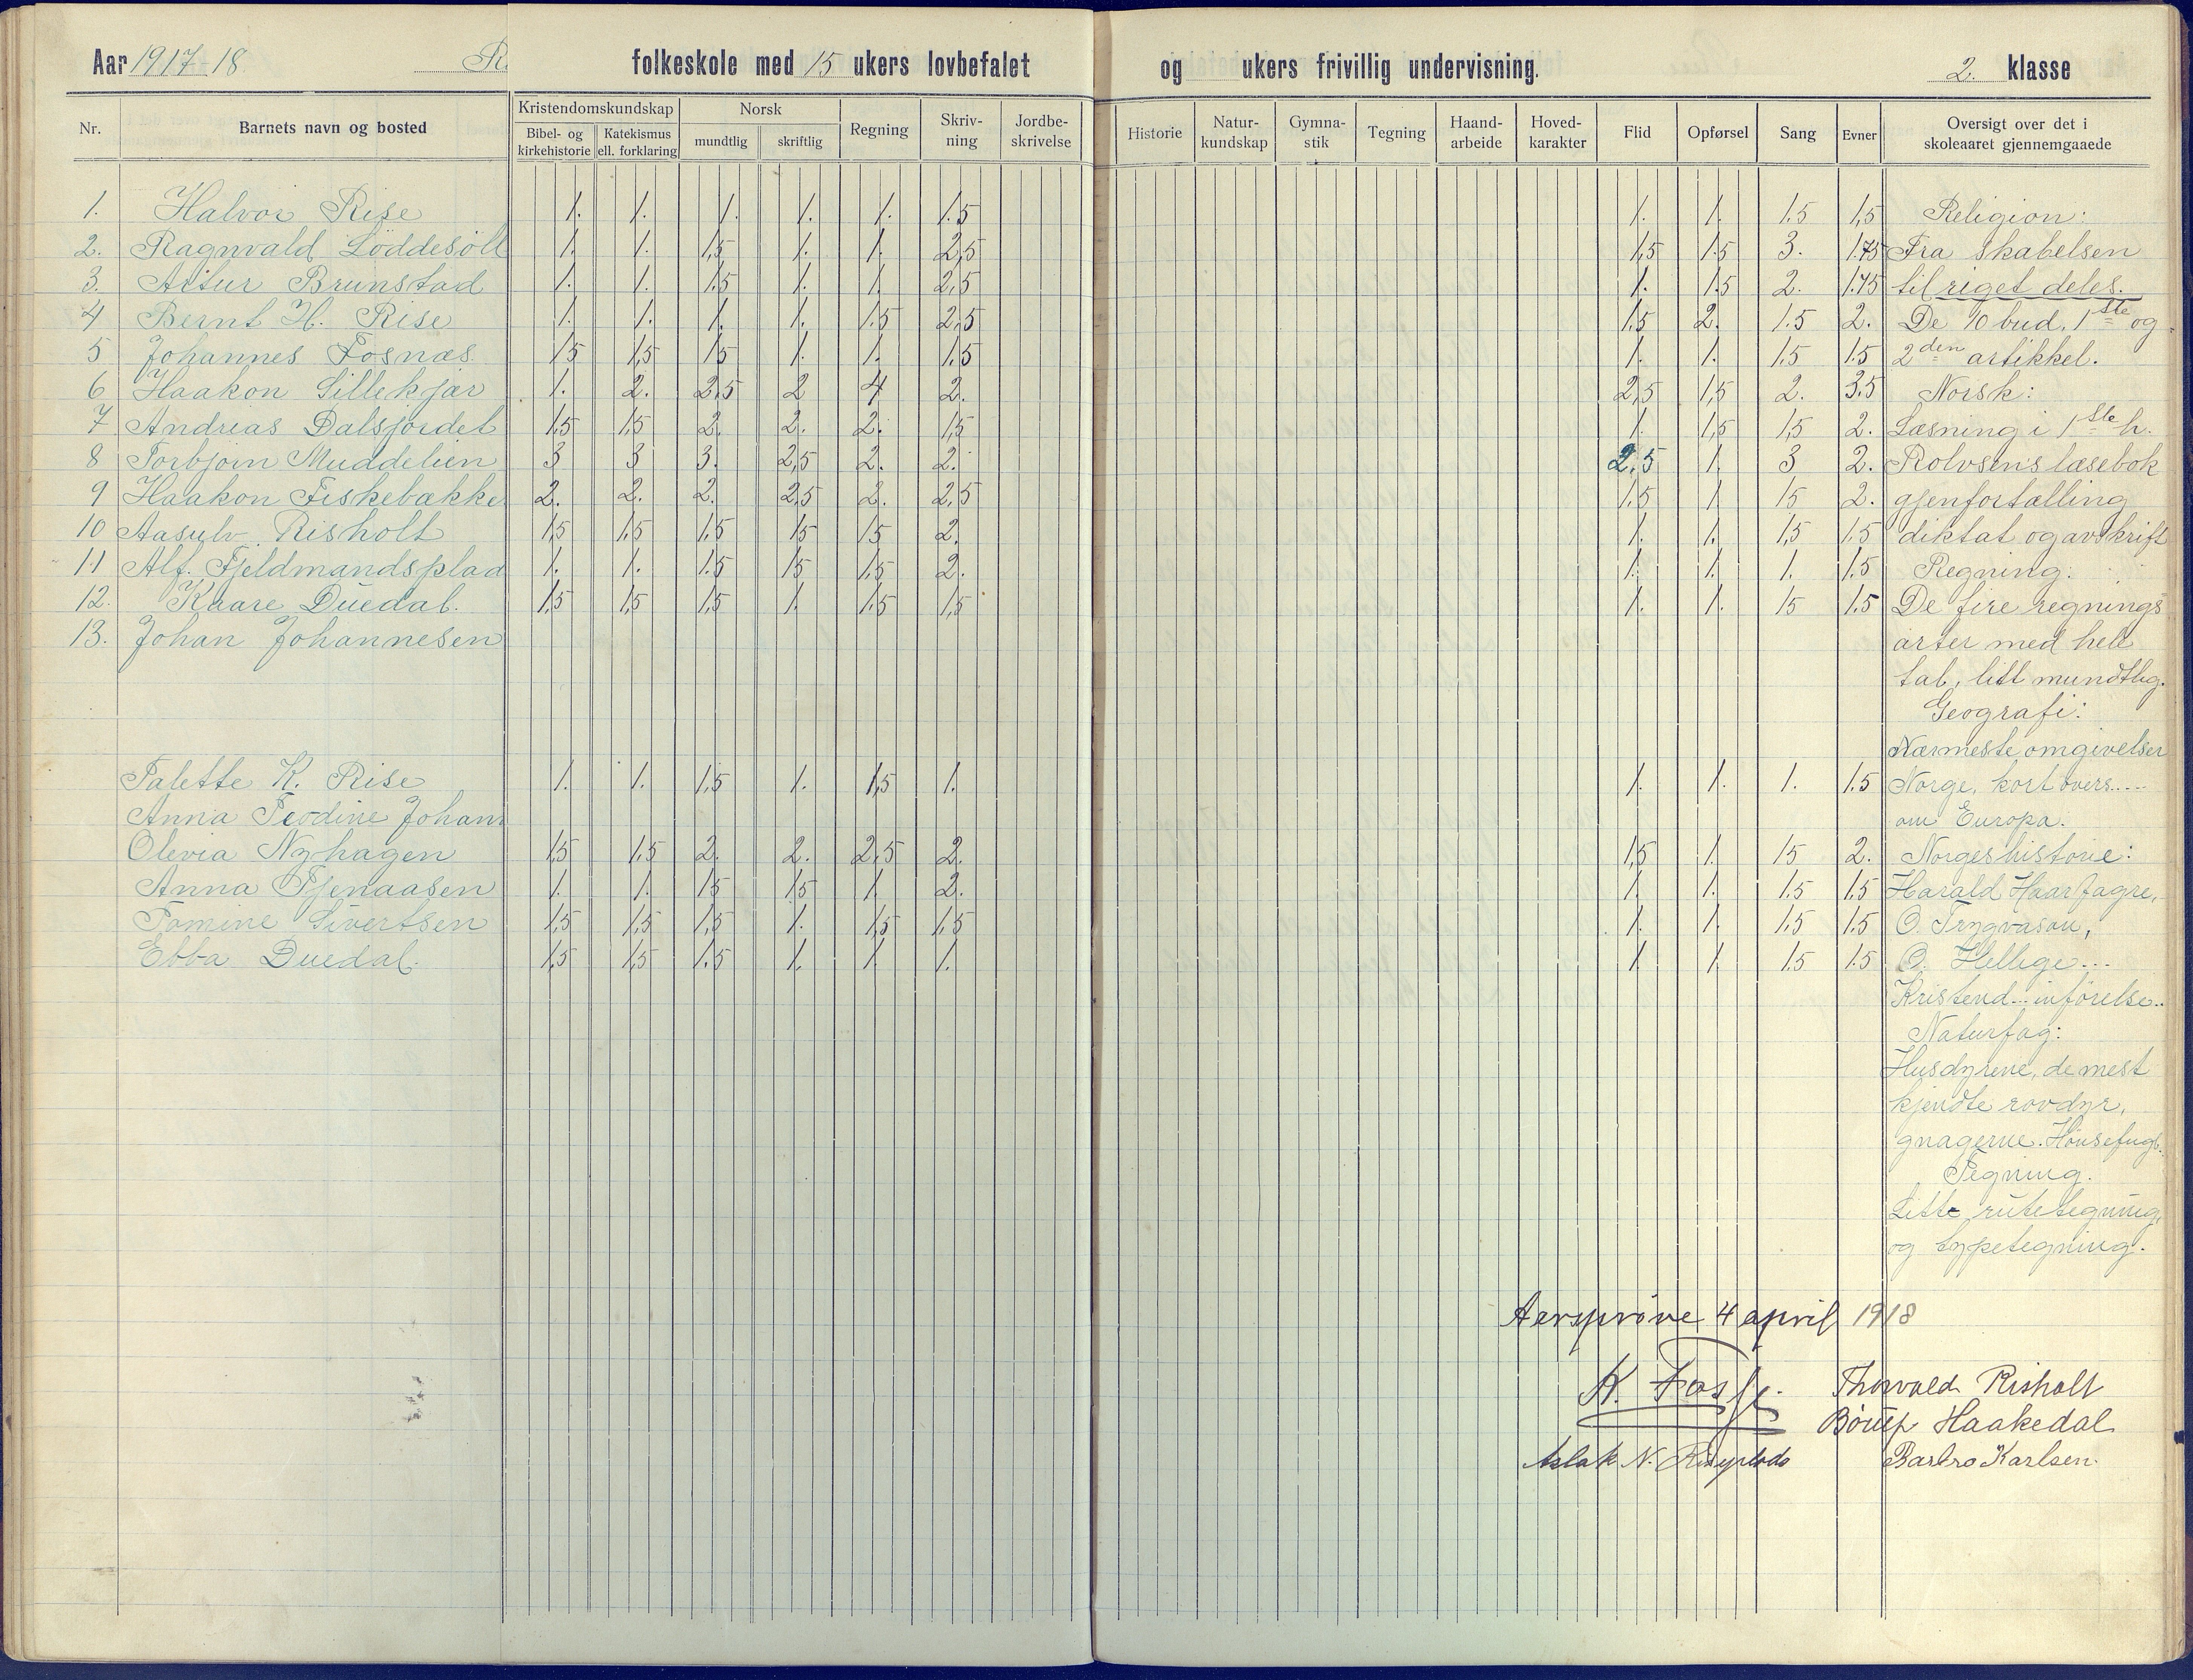 Aar 1917-18 R folkeskole med 15 ukers lovbefalet og ukers frivillig undervisning. 2. klasse
Nr. Barnets navn og bosted Kristendomskundskap Bibel- og kirkehistorie Katekismus ell. forklaring Norsk mundtlig skriftlig Regning Skriv-ning Jordbe-skrivelse Historie Natur-kundskap Gymna-stik Tegning Haand-arbeide Hoved-karakter Flid Opførsel Sang Evner Oversigt over det i skoleaaret gjennemgaaede
1. Halvor Rise 1. 1. 1. 1. 1. 1.5 1. 1. 1.5 1,5 Religion:
2. Ragnvald Löddesöll 1. 1. 1,5 1. 1. 2,5 1,5 1.5 3. 1.75 Fra skabelsen
3. Artur Brunstad 1. 1. 1.5 1. 1. 2,5 1. 1.5 2. 1.75 til riget deles.
4 Bernt H. Rise 1. 1. 1. 1. 1.5 2,5 1.5 2. 1.5 2. De 10 bud. 1ste og
5 Johannes Fosnæs 1 5 1,5 1 5 1. 1. 1.5 1. 1. 1.5 1.5 2den artikkel.
6 Haakon Lillekjær 1. 2. 2,5 2 4 2. 2,5 1,5 2. 3.5 Norsk:
7 Andreas Dalsfordet 1.5 1.5 2. 2. 2. 1,5 1. 1,5 1,5 2. Læsning i 1ste h.
8 Torbjørn Muddelien 3 3 3. 2,5 2. 2. 2.5 1. 3 2. Rolvsens læsebok
9 Haakon Fiskebække 2. 2. 2. 2,5 2. 2,5 1.5 1 15 2. gjenfortælling
10 Aasulv Risholt 1,5 1.5 1.5 15 15 2. 1. 1. 1,5 1.5 diktat og avskrift
11 Alf. Fjeldmandsplad 1. 1. 1.5 15 1.5 2. 1. 1. 1. 1.5 Regning:
12. Kaare Duedal. 1,5 1,5 1,5 1. 1.5 1,5 1. 1. 15 1.5 De fire regnings
13. Johan Johannesen arter med hele
tal, litt mundtlig.
Geografi:
Nærmeste omgivelser
Talette K. Rise 1. 1. 1,5 1. 1,5 1. 1. 1. 1. 1.5 Norge, kort overs....
Anna Teodine Johan om Europa.
Olevia Nyhagen 1,5 1.5 2. 2. 2,5 2. 1,5 1. 15 2. Norgeshistorie:
Anna Tjenaasen 1. 1. 15 15 1. 2. 1. 1. 1.5 1.5 Harald Haarfagre,
Tomine Sivertsen 1,5 1,5 1,5 1. 1,5 1.5 1. 1. 1.5 1.5 O. Trygvason,
Ebba Duedal. 1,5 1,5 1.5 1. 1. 1. 1. 1. 1.5 1.5 O. Hellige...
Kristend... inførelse..
Naturfag:
Husdyrene, de mest
kjendte rovdyr,
gnagerne. Hønsefugl.
Tegning.
Litt rutetegning,
og typetegning.
Aarsprøve 4 april 1918
K. Fosse Thorvald Risholt
Børup Haakedal
Aslak N. Barbro Karlsen.